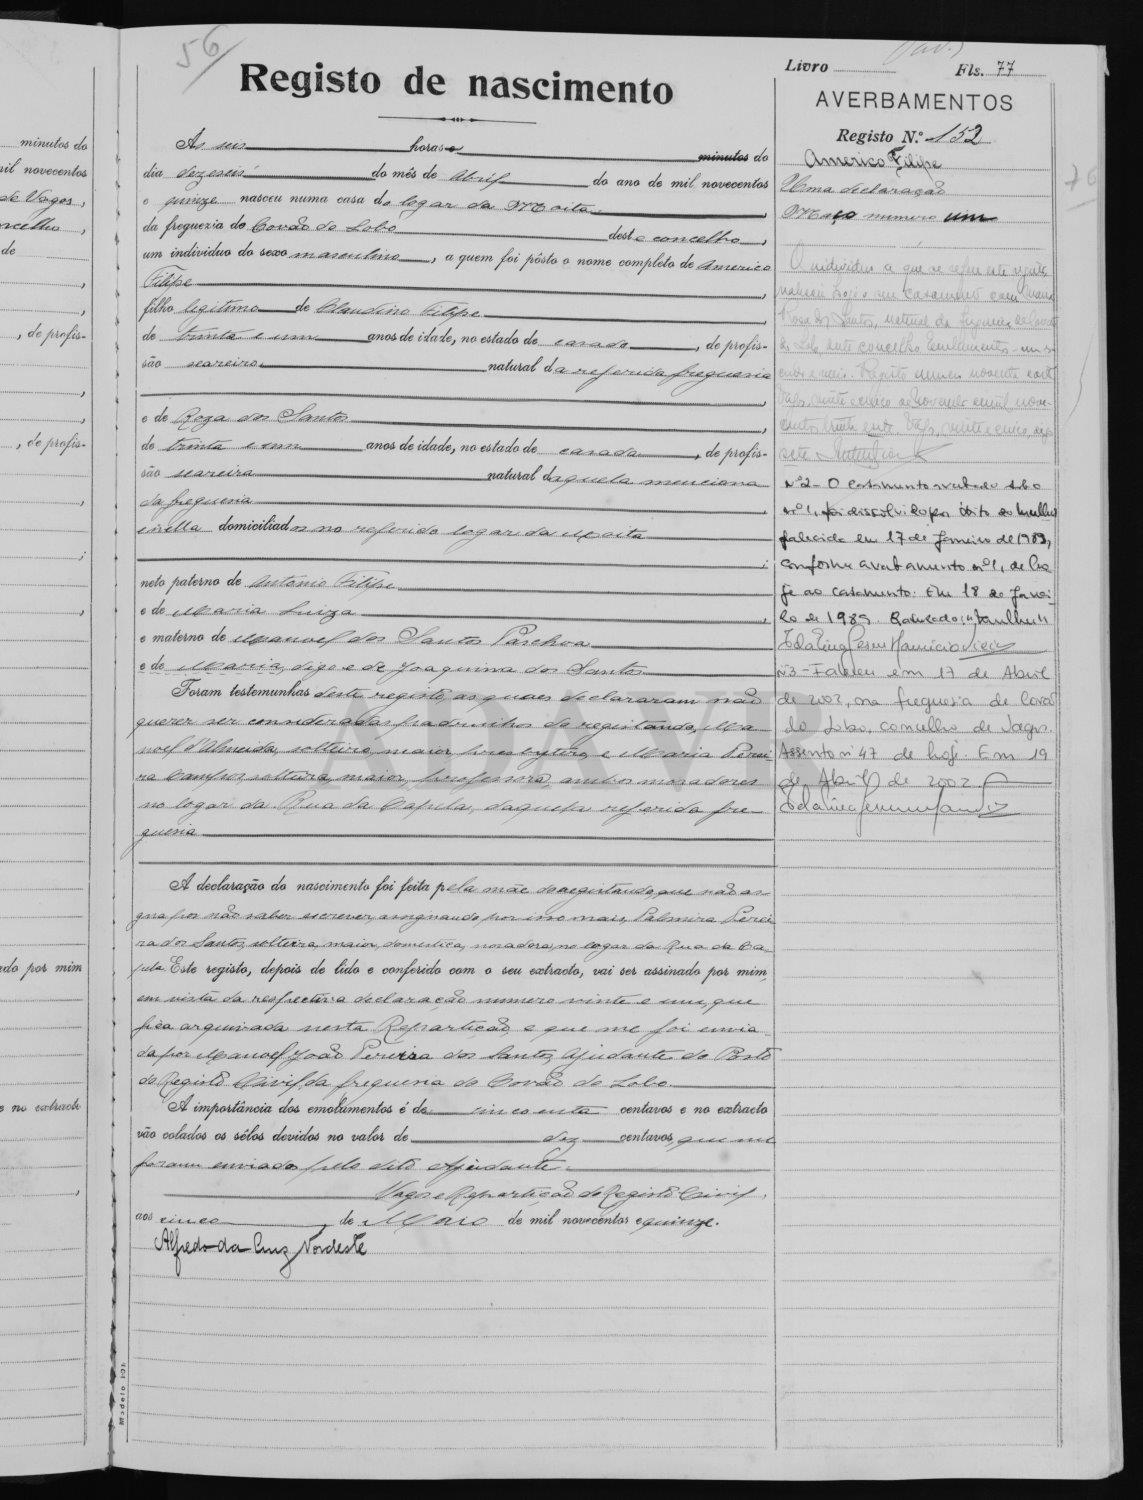 56
Registo de nascimento
As seis horas e minutos do
dia dezaseis do mês de Abril do ano de mil novecentos
e quinze nasceu numa casa do logar da Moita,
da freguezia do Covão do Lobo deste concelho,
um individuo do sexo masculino, a quem foi pôsto o nome completo de Americo
Filipe,
filho legitimo de Claudino Filipe,
de trinta e um anos de idade, no estado de casado, de profis-
são seareiro natural da referida freguesia
,
e de Roza dos Santos,
de trinta e um anos de idade, no estado de casada, de profis-
são seareira natural daquela menciona
da freguesia,
e n'ella domiciliados no referido logar da Moita
;
neto paterno de Antonio Filipe
e de Maria Luiza,
e materno de Manoel dos Santos Paschoa
e de Maria, digo e de Joaquina dos Santos
Foram testemunhas deste registo, as quaes declararam não
querer ser consideradas padrinhos do registando, Ma
noel d'Almeida, solteiro, maior, presbytero, e Maria Perei
ra Campos, solteira, maior, professora, ambos moradores
no logar da Rua da Capela, daquela referida fre-
guesia
A declaração do nascimento foi feita pela mãe do registando, que não as-
gna por não saber escrever, assignando por isso mais, Palmira Perei
ra dos Santos, solteira, maior, domestica, moradora, no logar da Rua da Ca-
pela. Este registo, depois de lido e conferido com o seu extracto, vai ser assinado por mim,
em vista da respectiva declaração numero vinte e um, que
fica arquivada nesta Repartição, e que me foi envia-
da por Manoel João Pereira dos Santos, Ajudante do Posto
do Registo Civil, da freguesia do Covão do Lobo.
A importância dos emolumentos é de cincoenta centavos e no extracto
vão colados os sêlos devidos no valor de dez centavos, que me
foram enviados pelo dito Ajudante.
Vagos e Repartição do Registo Civil,
aos cinco de Maio de mil novecentos e quinze.
Alfredo da Cruz Nordeste
Modelo 101
Livro Fls. 77
AVERBAMENTOS
Registo N.º 152
Americo Filipe
Uma declaração
Maço numero um
O individuo a que se refere este registo
realisou hoje o seu casamento com Maria
Rosa dos Santos, natural da freguesia do Covão
do Lobo, deste concelho
Registo numero noventa
Vagos, vinte e cinco de Novembro de mil nove-
centos trinta
Nº2 - O casamento averbado sob o
nº1, foi dissolvido por óbito da mulher
falecida em 17 de Janeiro de 1989,
conforme averbamento nº1, de ho
je ao casamento. Em 18 de Janei-
ro de 1989.
Nº3 - Faleceu em 17 de Abril
de 2002, na freguesia de Covão
do Lobo, concelho de Vagos.
Assento nº 47 de hoje. Em 19
de Abril de 2002.
76
minutos do
mil novecentos
de Vagos,
concelho,
de
, de profis-
, de profis-
ado por mim
e no extracto
ADAVR